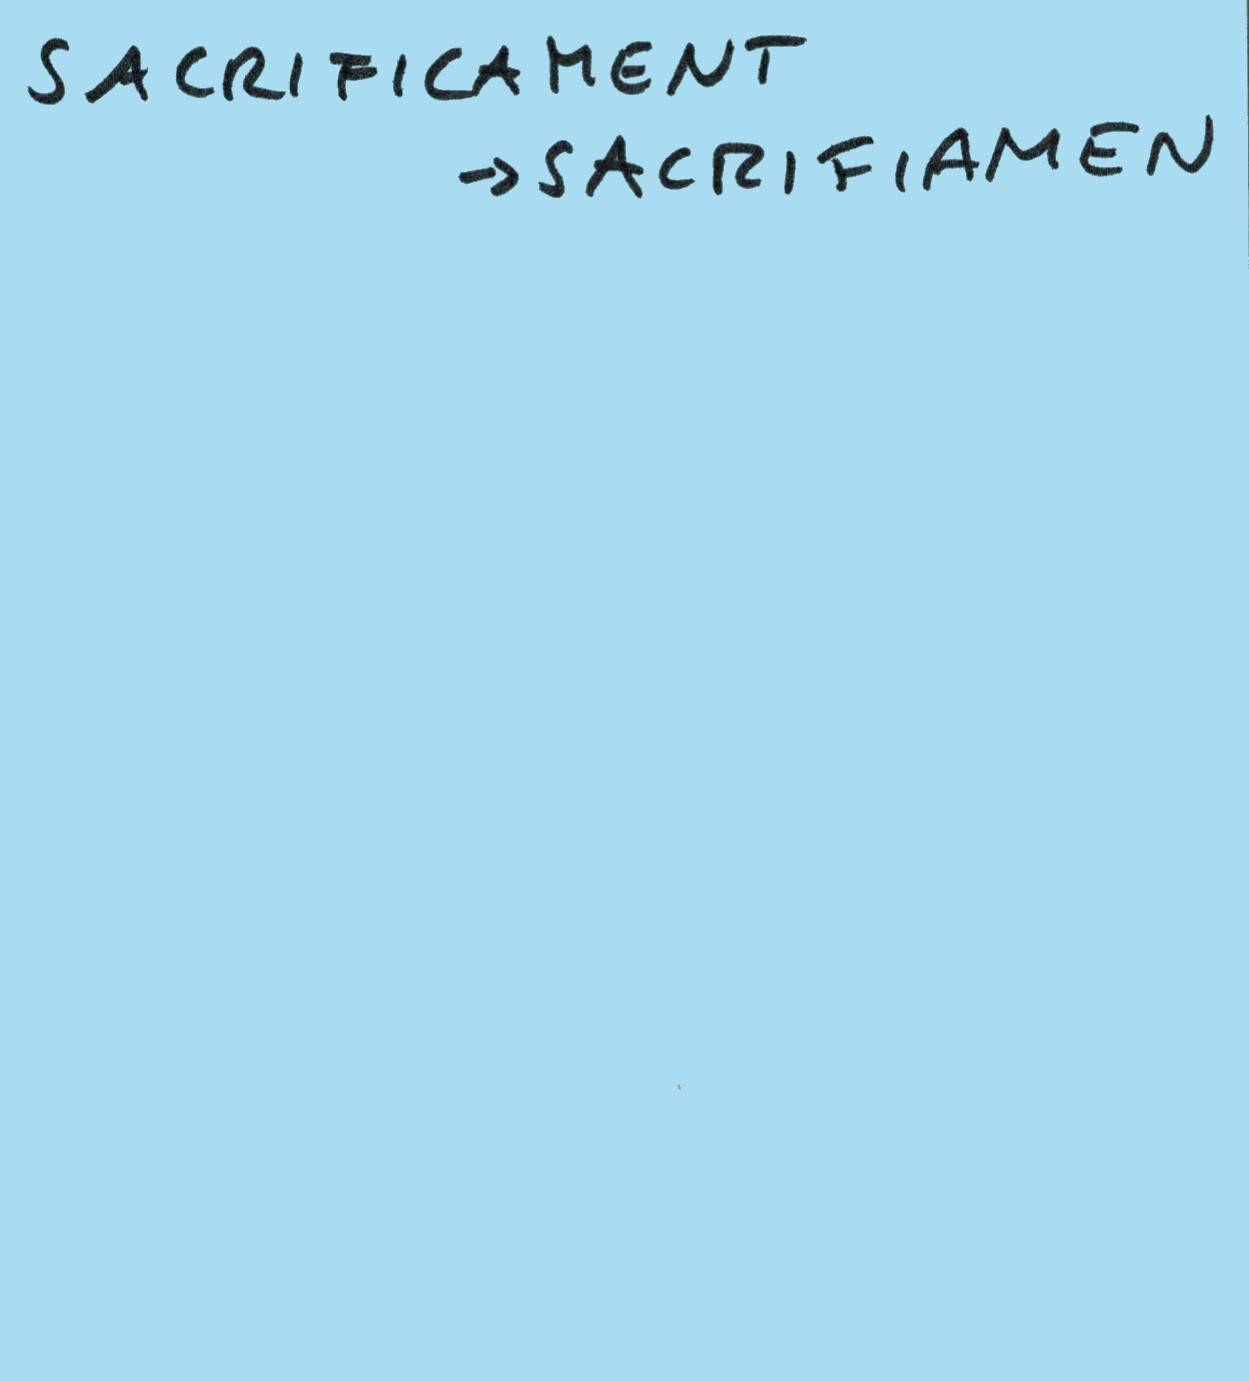 SACRIFICAMENT
→SACRIFIAMEN